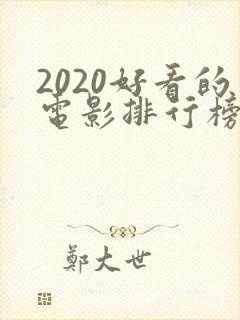 2020好看的
電影排行榜
鄭大世